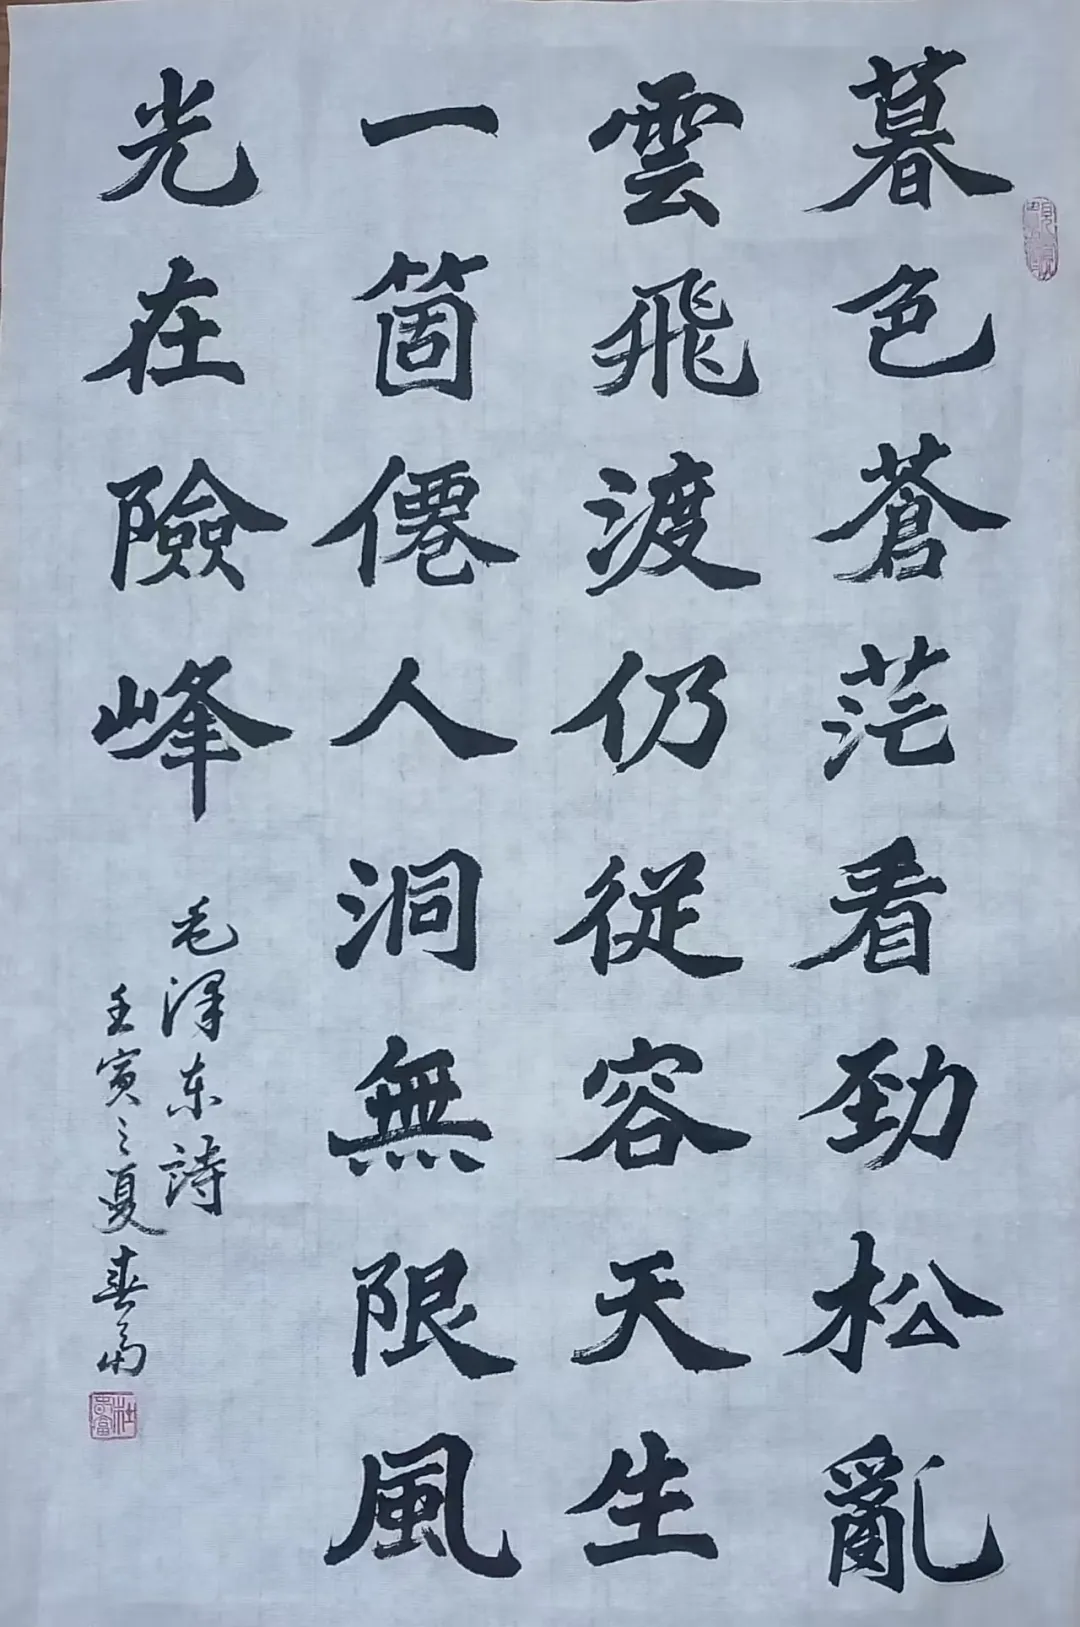 暮色蒼茫看劲松亂
雲飛渡仍從容天生
一箇僊人洞無限風
光在險峰
毛泽东詩
壬寅之夏春雨